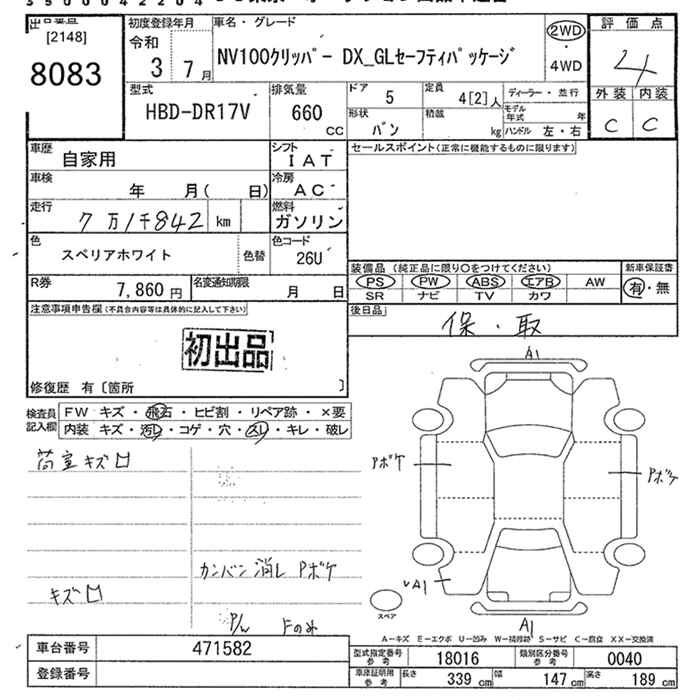 3500042204
出品番号
[2148]
8083
初度登録年月
令和
3 7月
車名・グレード
NV100クリッパー DX_GLセーフティパッケージ
2WD
4WD
評価点
4
外装 内装
C C
型式
HBD-DR17V
排気量
660
CC
ドア 5
定員 4[2]人
形状 バン
積載 kg
ディーラー・並行
モデル年式 年
ハンドル 左・右
車歴 自家用
シフト IAT
車検 年 月( 日)
冷房 AC
走行 7万1千842 km
燃料 ガソリン
色 スペリアホワイト 色替
色コード 26U
R券 7,860円
名変通知期限 月 日
セールスポイント(正常に機能するものに限ります)
装備品 (純正品に限り○をつけてください)
PS PW ABS エアB AW
SR ナビ TV カワ
新車保証書
有・無
後日品
保・取
注意事項申告欄(不具合内容等は具体的に記入して下さい)
初出品
修復歴 有〔箇所 〕
検査員記入欄
FW キズ・飛石・ヒビ割・リペア跡・×要
内装 キズ・汚レ・コゲ・穴・スレ・キレ・破レ
荷室キズ
カンバン消し Pボケ
キズ
P/W Fのみ
A1
Pボケ
Pボケ
A1
A1
スペア
A-キズ E-エクボ U-凹み W-補修跡 S-サビ C-腐食 XX-交換済
車台番号 471582
登録番号
型式指定番号 参考 18016
類別区分番号 参考 0040
車庫証明用 参考 長さ 339 cm 幅 147 cm 高さ 189 cm